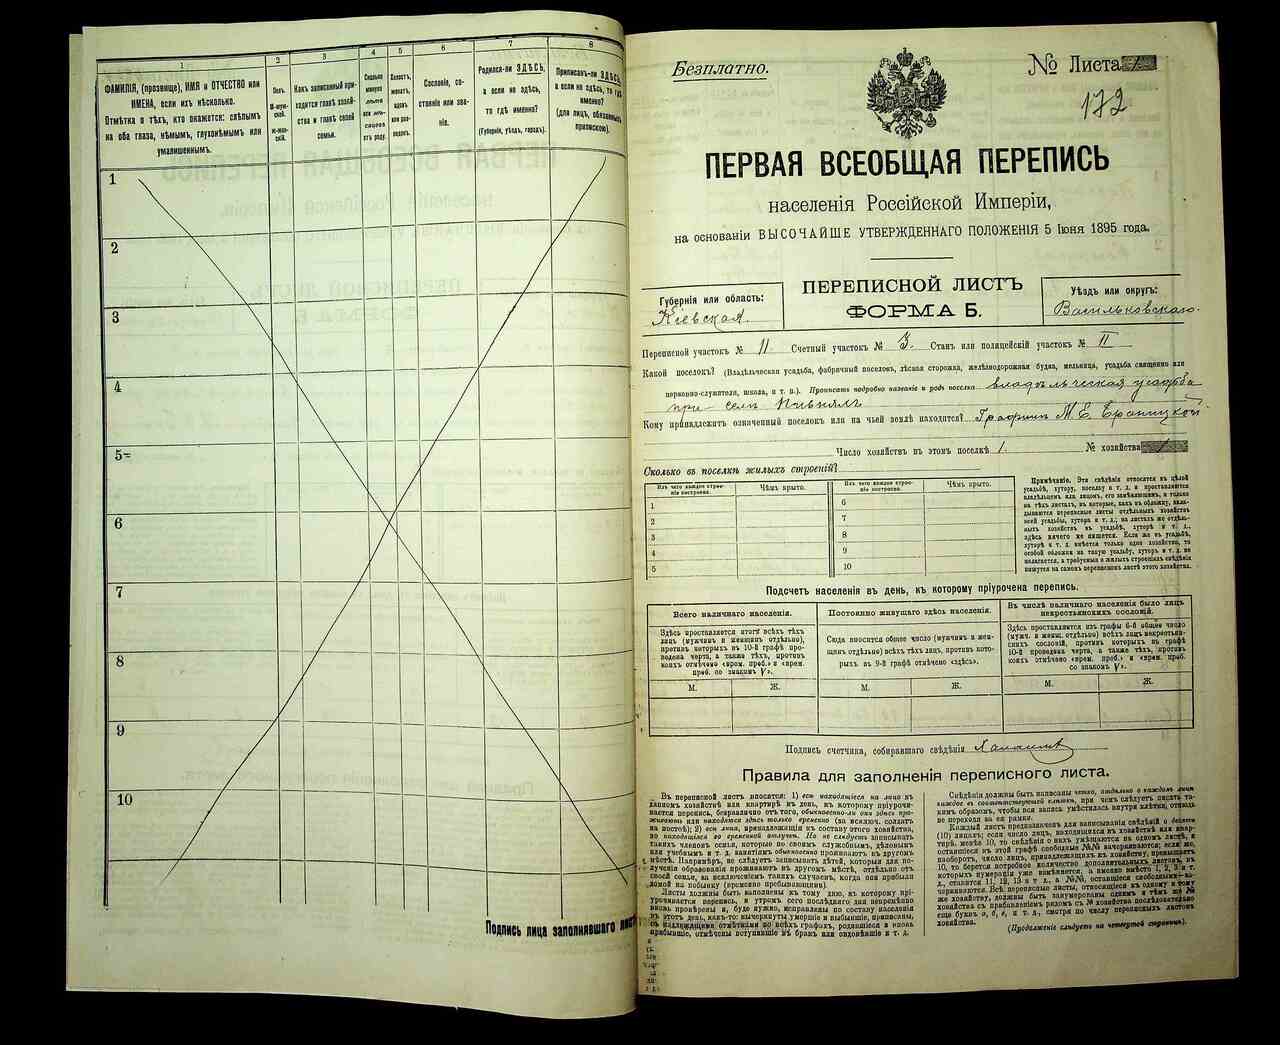 1
2
3
4
5
6
7
8
ФАМИЛІЯ, (прозвище), ИМЯ и ОТЧЕСТВО или
ИМЕНА, если ихъ нѣсколько.
Отмѣтка о тѣхъ, кто окажется: слѣпымъ
на оба глаза, нѣмымъ, глухонѣмымъ или
умалишеннымъ.
Полъ.
М-муж-
ской.
Ж-жен-
скій.
Какъ записанный при-
ходится главѣ хозяй-
ства и главѣ своей
семьи.
Сколько
минуло
лѣтъ
или мѣ-
сяцевъ
отъ роду.
Холостъ,
женатъ,
вдовъ
или раз-
веденъ.
Сословіе, со-
стояніе или зва-
ніе.
Родился-ли ЗДѢСЬ,
а если не здѣсь,
то гдѣ именно?
(Губернія, уѣздъ, городъ).
Приписанъ-ли ЗДѢСЬ,
а если не здѣсь, то гдѣ
именно?
(для лицъ, обязанныхъ
припискою).
1
2
3
4
5
6
7
8
9
10
Подпись лица заполнявшаго лист
Безплатно.
№ Листа
172
ПЕРВАЯ ВСЕОБЩАЯ ПЕРЕПИСЬ
населенія Россійской Имперіи,
на основаніи ВЫСОЧАЙШЕ УТВЕРЖДЕННАГО ПОЛОЖЕНІЯ 5 Іюня 1895 года.
Губернія или область:
Кіевская.
ПЕРЕПИСНОЙ ЛИСТЪ
ФОРМА Б.
Уѣздъ или округъ:
Васильковскаго.
Переписной участокъ № 11. Счетный участокъ № 3. Станъ или полицейскій участокъ № II
Какой поселокъ? (Владѣльческая усадьба, фабричный поселокъ, лѣсная сторожка, желѣзнодорожная будка, мельница, усадьба священно или
церковно-служителя, школа, и т. п.). Прописать подробно названіе и родъ поселка владѣльческая усадьба
при селѣ
Кому принадлежитъ означенный поселокъ или на чьей землѣ находится? Графини М. Е. Браницкой.
Число хозяйствъ въ этомъ поселкѣ 1. № хозяйства 1
Сколько въ поселкѣ жилыхъ строеній?
Изъ чего каждое строе-
ніе построено.
Чѣмъ крыто.
Изъ чего каждое строе-
ніе построено.
Чѣмъ крыто.
1
2
3
4
5
6
7
8
9
10
Примѣчаніе. Эти свѣдѣнія относятся къ цѣлой
усадьбѣ, хутору, поселку и т. д. и проставляются
владѣльцемъ или лицомъ, его замѣняющимъ, и только
на тѣхъ листахъ, въ которые, какъ въ обложку, вкла-
дываются переписные листы отдѣльныхъ хозяйствъ
всей усадьбы, хутора и т. д.; на листахъ же отдѣль-
ныхъ хозяйствъ въ усадьбѣ, хуторѣ и т. д.,
здѣсь ничего не пишется. Если же въ усадьбѣ,
хуторѣ и т. д. имѣется только одно хозяйство, то
особой обложки на такую усадьбу, хуторъ и т. д. не
полагается, а требуемыя о жилыхъ строеніяхъ свѣдѣнія
пишутся на самомъ переписномъ листѣ этого хозяйства.
Подсчетъ населенія въ день, къ которому пріурочена перепись.
Всего наличнаго населенія.
Здѣсь проставляется итогъ всѣхъ тѣхъ
лицъ (мужчинъ и женщинъ отдѣльно),
противъ которыхъ въ 10-й графѣ про-
ведена черта, а также тѣхъ, противъ
коихъ отмѣчено «врем. преб.» и «врем.
преб. со знакомъ V».
М. Ж.
Постоянно живущаго здѣсь населенія.
Сюда вносится общее число (мужчинъ и жен-
щинъ отдѣльно) всѣхъ тѣхъ лицъ, противъ кото-
рыхъ въ 9-й графѣ отмѣчено «здѣсь».
М. Ж.
Въ числѣ наличнаго населенія было лицъ
некрестьянскихъ сословій.
Здѣсь проставляется изъ графы 6-й общее число
(мужч. и женщ. отдѣльно) всѣхъ лицъ некрестьян-
скихъ сословій, противъ которыхъ въ графѣ
10-й проведена черта, а также тѣхъ, противъ
коихъ отмѣчено «врем. преб.» и «врем. преб.
со знакомъ V».
М. Ж.
Подпись счетчика, собиравшаго свѣдѣнія
Правила для заполненія переписнаго листа.
Въ переписной листъ вносятся: 1) всѣ находящіяся на лицо въ
данномъ хозяйствѣ или квартирѣ въ день, къ которому пріурочи-
вается перепись, безразлично отъ того, обыкновенно-ли они здѣсь про-
живаютъ или находятся здѣсь только временно (за исключ. солдатъ
на постоѣ); 2) всѣ лица, принадлежащія къ составу этого хозяйства,
но находящіяся во временной отлучкѣ. Но не слѣдуетъ записывать
такихъ членовъ семьи, которые по своимъ служебнымъ, дѣловымъ
или учебнымъ и т. д. занятіямъ обыкновенно проживаютъ въ другомъ
мѣстѣ. Напримѣръ, не слѣдуетъ записывать дѣтей, которыя для по-
лученія образованія проживаютъ въ другомъ мѣстѣ, отдѣльно отъ
своей семьи, за исключеніемъ такихъ случаевъ, когда они прибыли
домой на побывку (временно пребывающими).
Листы должны быть заполнены къ тому дню, къ которому прі-
урочивается перепись, и утромъ сего послѣдняго дня непремѣнно
вновь провѣрены и, буде нужно, исправлены по составу населенія
въ этотъ день, какъ-то: вычеркнуты умершіе и выбывшіе, приписаны,
съ надлежащими отмѣтками по всѣхъ графахъ, родившіеся и вновь
прибывшіе, отмѣчены вступившіе въ бракъ или овдовѣвшіе и т. д.
Свѣдѣнія должны быть написаны четко, отдѣльно о каждомъ лицѣ
каждое въ соотвѣтствующей клѣткѣ, при чемъ слѣдуетъ писать та-
кимъ образомъ, чтобы вся запись умѣстилась внутри клѣтки, отнюдь
не переходя за ея рамки.
Каждый листъ предназначенъ для записыванія свѣдѣній о десяти
(10) лицахъ; если число лицъ, находящихся въ хозяйствѣ или квар-
тирѣ, менѣе 10, то свѣдѣнія о нихъ умѣщаются на одномъ листѣ, и
оставшіеся въ этой графѣ свободные №№ зачеркиваются; если же,
наоборотъ, число лицъ, принадлежащихъ къ хозяйству, превышаетъ
10, то берется потребное количество дополнительныхъ листовъ, въ
которыхъ нумерація уже измѣняется, а именно вмѣсто 1, 2, 3 и т.
д., ставится 11, 12, 13 и т. д., а №№, оставшіеся свободными—за-
черкиваются. Всѣ переписные листы, относящіеся къ одному и тому
же хозяйству, должны быть занумерованы однимъ и тѣмъ же №
хозяйства съ прибавленіемъ рядомъ съ № хозяйства послѣдовательно
еще буквъ а, б, в, и т. д., смотря по числу переписныхъ листовъ
хозяйства.
(Продолженіе слѣдуетъ на четвертой страницѣ).